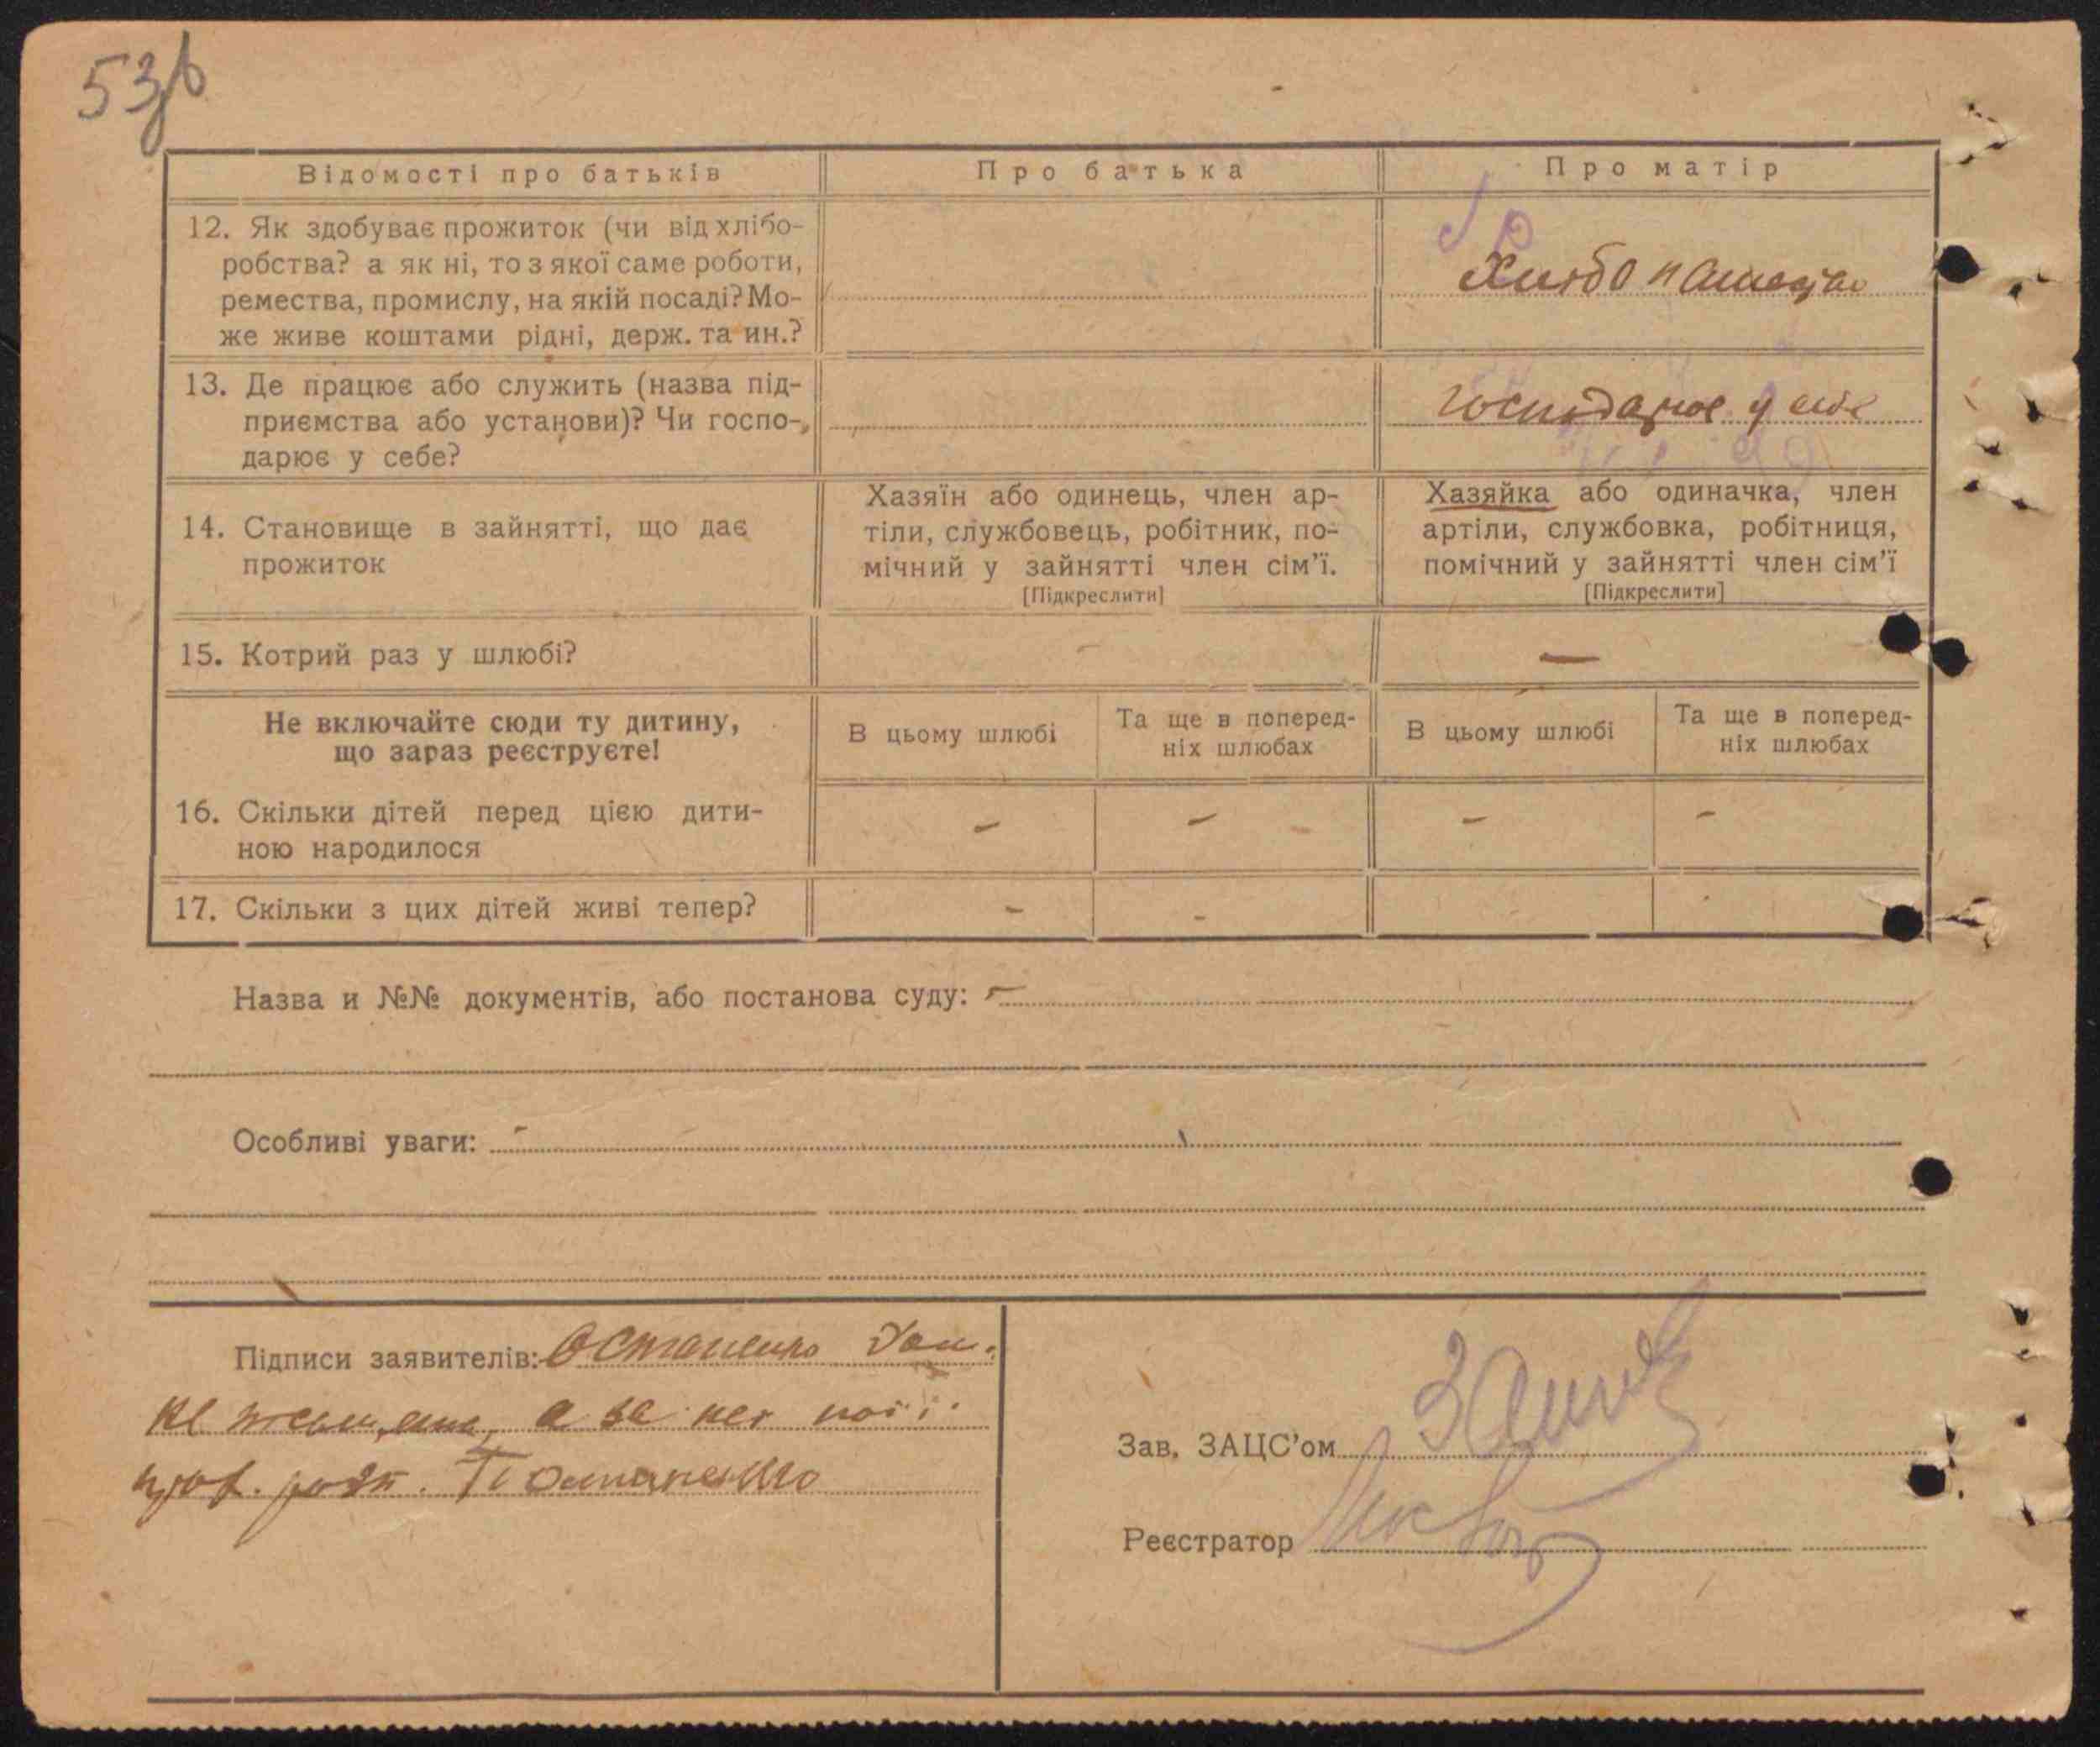 53
Відомості про батьків
Про батька
Про матір
12. Як здобуває прожиток (чи від хлібо-
робства? а як ні, то з якої саме роботи,
ремества, промислу, на якій посаді? Мо-
же живе коштами рідні, держ. та ин.?
13. Де працює або служить (назва під-
приємства або установи)? Чи госпо-
дарює у себе?
господарює у себе
14. Становище в зайнятті, що дає
прожиток
Хазяїн або одинець, член ар-
тіли, службовець, робітник, по-
мічний у зайнятті член сім'ї.
[Підкреслити]
Хазяйка або одиначка, член
артіли, службовка, робітниця,
помічний у зайнятті член сім'ї
[Підкреслити]
15. Котрий раз у шлюбі?
—
Не включайте сюди ту дитину,
що зараз реєструєте!
В цьому шлюбі
Та ще в поперед-
ніх шлюбах
В цьому шлюбі
Та ще в поперед-
ніх шлюбах
16. Скільки дітей перед цією дити-
ною народилося
- - - -
17. Скільки з цих дітей живі тепер?
- -
Назва и №№ документів, або постанова суду: -
Особливі уваги: -
Підписи заявителів: Остапенко
а за неї
Остапенко
Зав. ЗАЦС'ом
Реєстратор